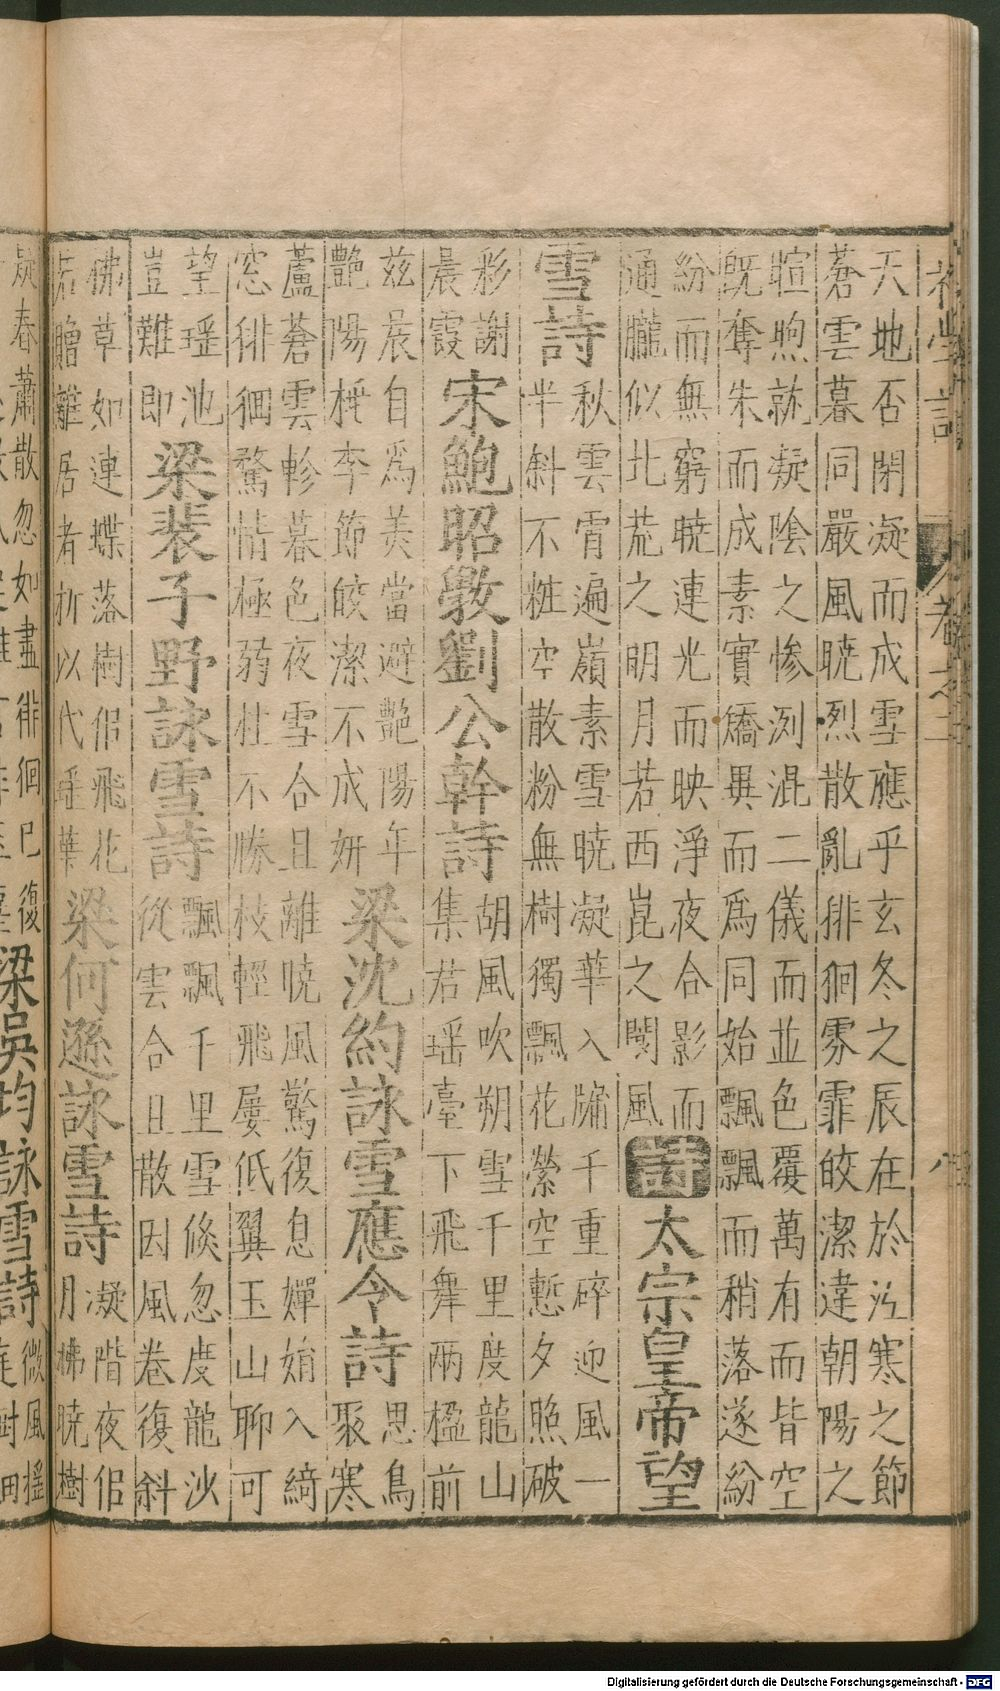 天地否閉凝而成雪應乎玄冬之辰在於沍寒之節
蒼雲暮同嚴風曉烈散亂徘徊雰霏皎潔違朝陽之
暄煦就凝陰之慘冽混二儀而並色覆萬有而皆空
既奪朱而成素實矯異而爲同始飄飄而稍落遂紛
紛而無窮曉連光而映淨夜合影而
通朧似北荒之明月若西崑之閬風
詩 太宗皇帝望
雪詩
秋雲霄遍嶺素雪曉凝華入牖千重碎迎風一
半斜不粧空散粉無樹獨飄花縈空慙夕照破
彩謝
晨霞
宋鮑昭斆劉公幹詩
胡風吹朔雪千里度龍山
集君瑶臺下飛舞兩楹前
茲辰自爲美當避艷陽年
艷陽桃李節皎潔不成妍
梁沈約詠雪應令詩
思鳥
聚寒
蘆蒼雲軫暮色夜雪合且離曉風驚復息嬋娟入綺
窓徘徊騖情極弱柱不勝枝輕飛屢低翼玉山聊可
望瑶池
豈難即
梁裴子野詠雪詩
飄飄千里雪倐忽度龍沙
從雲合且散因風卷復斜
拂草如連蝶落樹佀飛花
若贈離居者折以代瑶華
梁何遜詠雪詩
凝階夜佀
月拂曉樹
疑春蕭散忽如盡徘徊已復
梁吳均詠雪詩
微風摇
庭樹細
Digitalisierung gefördert durch die Deutsche Forschungsgemeinschaft - DFG